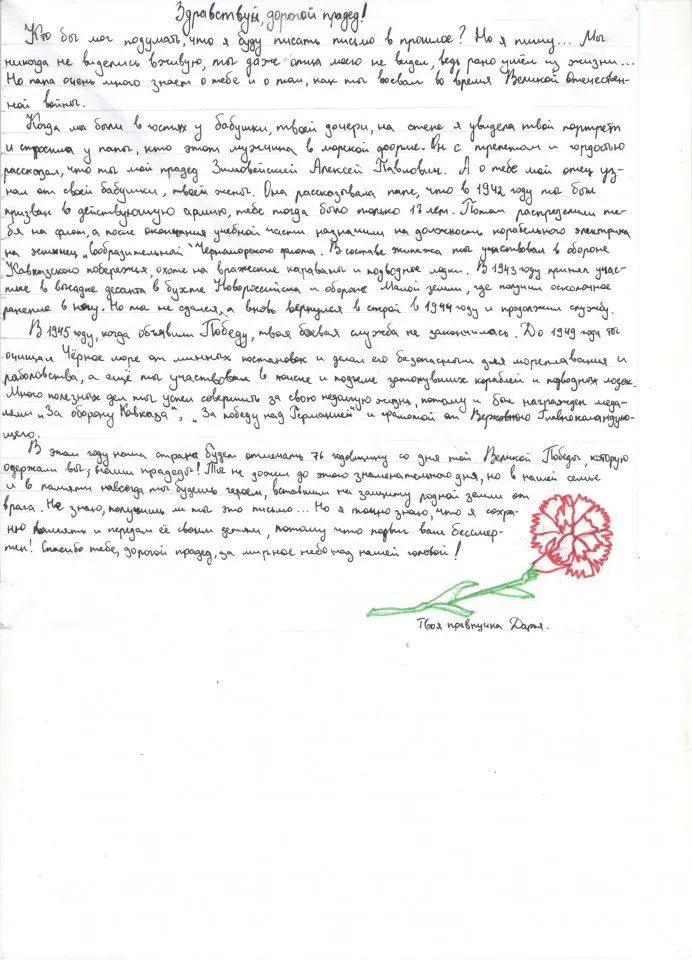 Здравствуй, дорогой прадед!
Кто бы мог подумать, что я буду писать письмо в прошлое? Но я пишу... Мы
никогда не виделись вживую, ты даже отца моего не видел, ведь рано ушёл из жизни...
Но папа очень много знает о тебе и о том, как ты воевал во время Великой Отечествен-
ной войны.
Когда мы были в гостях у бабушки, твоей дочери, на стене я увидела твой портрет
и спросила у папы, кто этот мужчина в морской форме. Он с трепетом и гордостью
рассказал, что ты мой прадед Зимовейский Алексей Павлович. А о тебе мой отец уз-
нал от своей бабушки, твоей жены. Она рассказывала папе, что в 1942 году ты был
призван в действующую армию, тебе тогда было только 17 лет. Потом распределили те-
бя на флот, а после окончания учебной части назначили на должность корабельного электрика
на эсминец „Сообразительный" Черноморского флота. В составе экипажа ты участвовал в обороне
Кавказского побережья, охоте на вражеские караваны и подводные лодки. В 1943 году принял учас-
тие в высадке десанта в бухте Новороссийска и обороне Малой земли, где получил осколочное
ранение в ногу. Но ты не сдался, а вновь вернулся в строй в 1944 году и продолжил службу.
В 1945 году, когда объявили Победу, твоя боевая служба не закончилась. До 1949 года ты
очищал Чёрное море от минных постановок и делал его безопасным для мореплавания и
рыболовства, а ещё ты участвовал в поиске и подъеме затонувших кораблей и подводных лодок.
Много полезных дел ты успел совершить за свою недолгую жизнь, потому и был награжден меда-
лями „За оборону Кавказа", „За победу над Германией" и грамотой от Верховного Главнокомандую-
щего.
В этом году наша страна будет отмечать 76 годовщину со дня той Великой Победы, которую
одержали вы, наши прадеды! Ты не дожил до этого знаменательного дня, но в нашей семье
и в памяти навсегда ты будешь героем, вставшим на защиту родной земли от
врага. Не знаю, получишь ли ты это письмо... Но я точно знаю, что я сохра-
ню память и передам её своим детям, потому что подвиг ваш бессмер-
тен! Спасибо тебе, дорогой прадед, за мирное небо над нашей головой!
Твоя правнучка Дарья.